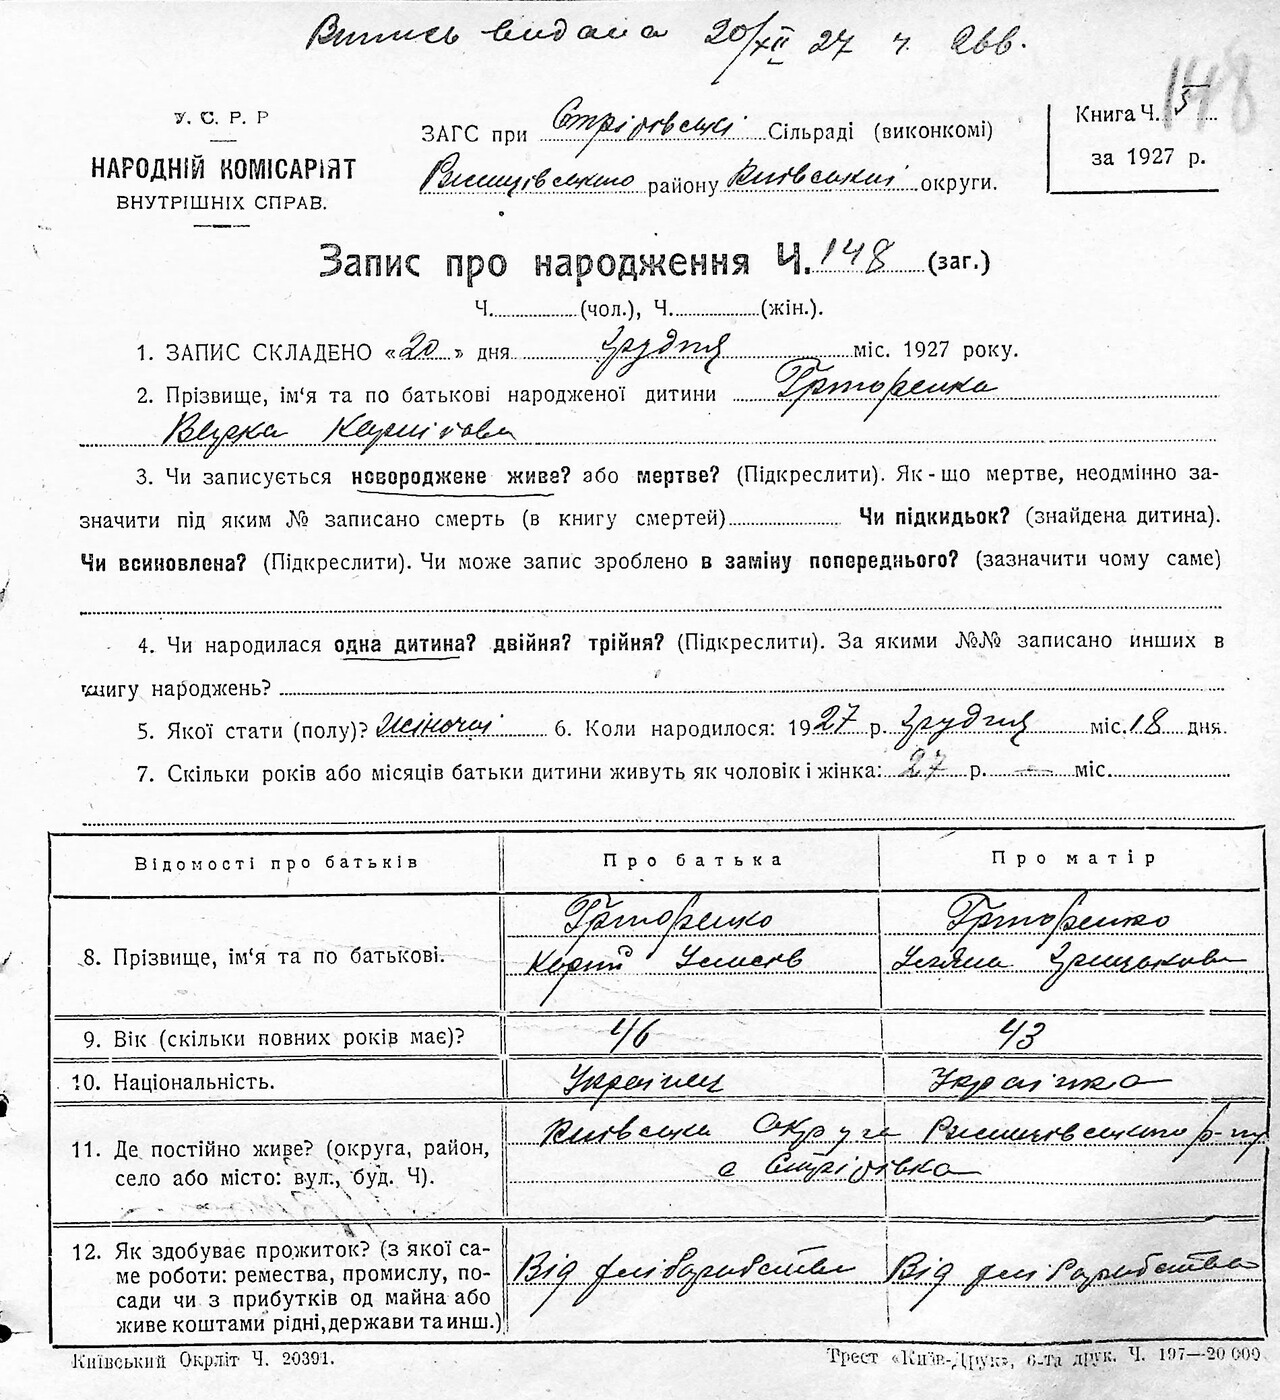 Випись видана 20/XII 27 ч.
148
У. С. Р. Р
НАРОДНІЙ КОМІСАРІЯТ
ВНУТРІШНІХ СПРАВ.
ЗАГС при Стрітівські Сільраді (виконкомі)
району Київської округи.
Книга Ч. 5
за 1927 р.
Запис про народження Ч. 148 (заг.)
Ч. (чол.), Ч. (жін.).
1. ЗАПИС СКЛАДЕНО «20» дня грудня міс. 1927 року.
2. Прізвище, ім‘я та по батькові народженої дитини
3. Чи записується новороджене живе? або мертве? (Підкреслити). Як-що мертве, неодмінно за-
значити під яким № записано смерть (в книгу смертей) Чи підкидьок? (знайдена дитина).
Чи всиновлена? (Підкреслити). Чи може запис зроблено в заміну попереднього? (зазначити чому саме)
4. Чи народилася одна дитина? двійня? трійня? (Підкреслити). За якими №№ записано инших в
книгу народжень?
5. Якої стати (полу)? жіночої 6. Коли народилося: 1927 р. грудня міс. 18 дня.
7. Скільки років або місяців батьки дитини живуть як чоловік і жінка: 27 р. — міс.
Відомості про батьків
Про батька
Про матір
8. Прізвище, ім‘я та по батькові.
9. Вік (скільки повних років має)?
46
43
10. Національність.
Українець
Українка
11. Де постійно живе? (округа, район,
село або місто: вул., буд. Ч).
Київська Округа р-ну
с Стрітівка
12. Як здобуває прожиток? (з якої са-
ме роботи: ремества, промислу, по-
сади чи з прибутків од майна або
живе коштами рідні, держави та инш.)
Від хліборобства
Від хліборобства
Київський Окрліт Ч. 20391.
Трест «Київ-Друк», 6-та друк. Ч. 197—20 000